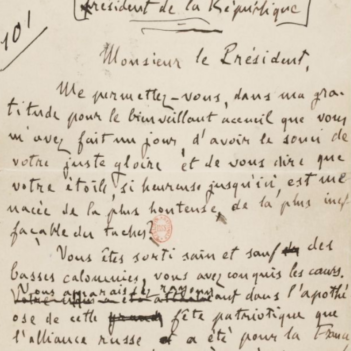 10!
président de la République
Monsieur le Président,
Me permettez-vous, dans ma gra-
titude pour le bienveillant accueil que vous
m'avez fait un jour, d'avoir le souci de
votre juste gloire et de vous dire que
votre étoile, si heureuse jusqu'ici, est me-
nacée de la plus honteuse, de la plus inef-
façable des taches?
Vous êtes sorti sain et sauf des
basses calomnies, vous avez conquis les cœurs.
Vous apparaissez rayonnant dans l'apothé-
ose de cette fête patriotique que
l'alliance russe a été pour la France